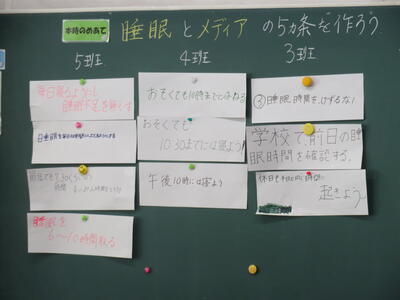 本時のめあて
睡眠とメディアの5カ条を作ろう
5班
4班
3班
毎日寝る
睡眠不足を無くす
睡眠を
6〜10時間取る
おそくても10時までにはねる
おそくても
10:30までには寝よう
午後10時には寝よう
③睡眠時間をけずるな！
学校で、前日の睡
眠時間を確認する。
休日も平日と同じ時間に
起きよう